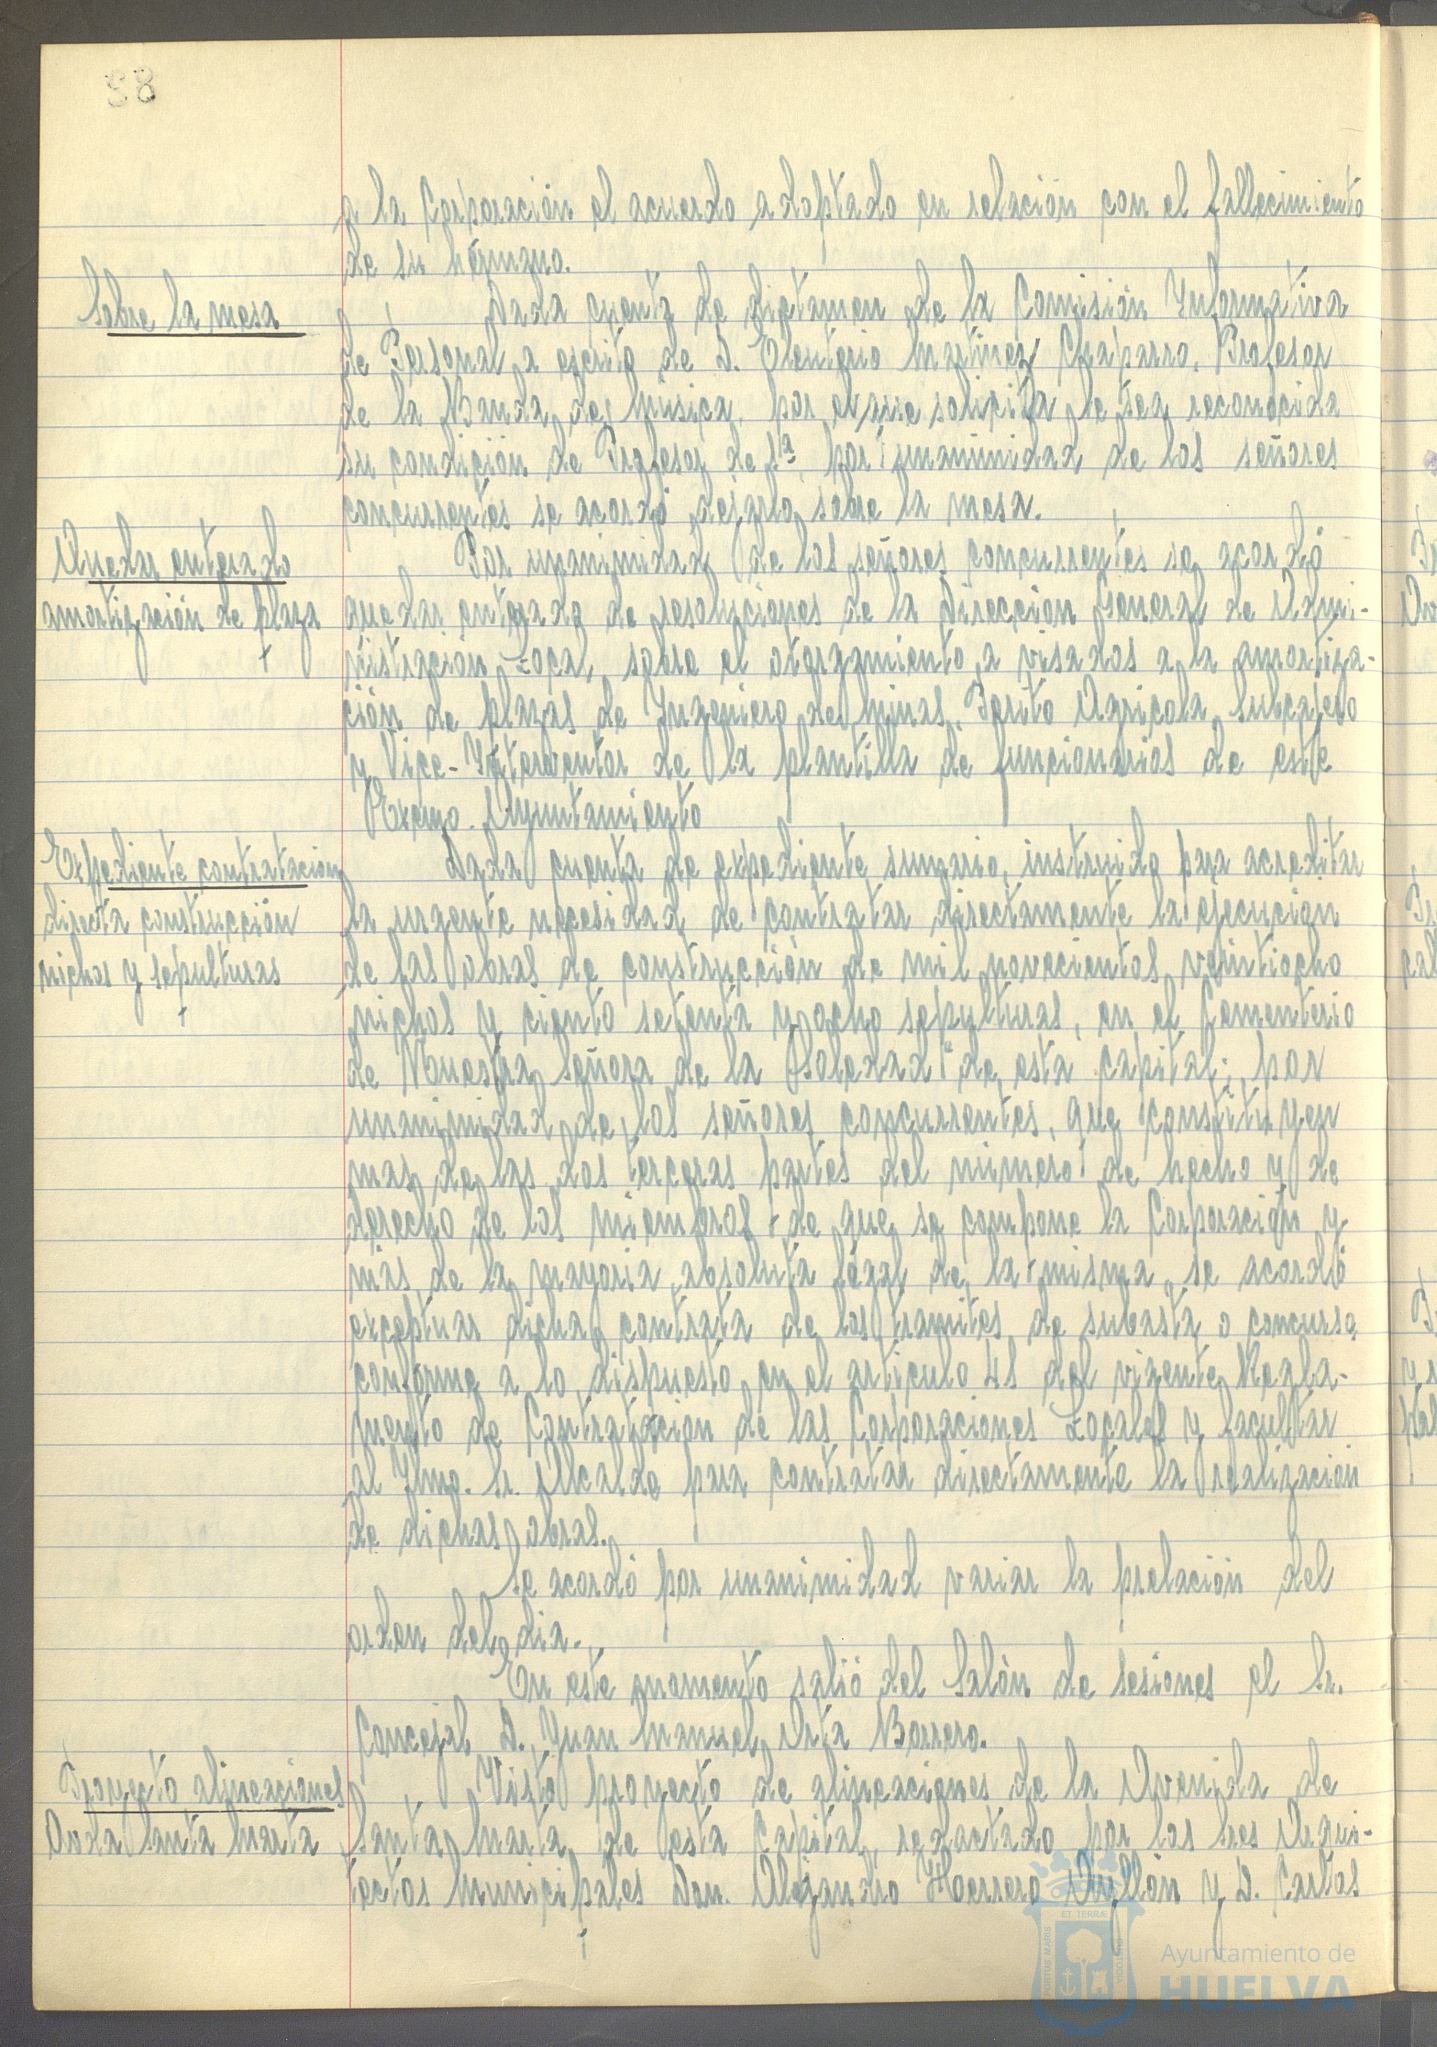 88
a la Corporación el acuerdo adoptado en relación con el fallecimiento
de su hermano.
Sobre la mesa
Dada cuenta de dictamen de la Comisión Informativa
de Personal a escrito de D. Eleuterio Martinez Chaparro, Profesor
de la Banda de Música, por el que solicita le sea reconocida
su condición de Profesor de 1ª, por unanimidad de los señores
concurrentes se acordó dejarlo sobre la mesa.
Quedar enterado
amortización de plaza
Por unanimidad de los señores concurrentes se acordó
quedar enterado de resoluciones de la Dirección General de Admi-
nistración Local, sobre el otorgamiento a visados a la amortiza-
ción de plazas de Ingeniero de Minas, Perito Agricola, Subcajero
y Vice-Interventor de la plantilla de funcionarios de este
Excmo. Ayuntamiento
Expediente contratacion
directa construcción
nichos y sepulturas
Dada cuenta de expediente sumario, instruido para acreditar
la urgente necesidad de contratar directamente la ejecución
de las obras de construcción de mil novecientos veintiocho
nichos y ciento setenta y ocho sepulturas, en el Cementerio
de Nuestra Señora de la Soledad" de esta capital; por
unanimidad de los señores concurrentes, que constituyen
mas de las dos terceras partes del número de hecho y de
derecho de los miembros de que se compone la Corporación y
más de la mayoria absoluta legal de la misma, se acordó
exceptuar dicha contrata de los tramites de subasta o concurso
conforme a lo dispuesto en el articulo 41 del vigente Regla-
mento de Contratacion de las Corporaciones Locales y facultar
al Iltmo. Sr. Alcalde para contratar directamente la realización
de dichas obras.
Se acordó por unanimidad variar la prelación del
orden del dia.
En este momento salió del Salón de Sesiones el Sr.
Concejal D. Juan Manuel Orta Borrero.
Proyecto alineaciones
Avda Santa Marta
Visto proyecto de alineaciones de la Avenida de
Santa Marta, de esta Capital, redactado por los Sres Arqui-
tectos Municipales Don. Alejandro Herrero Ayllón y D. Carlos
Ayuntamiento de
HUELVA